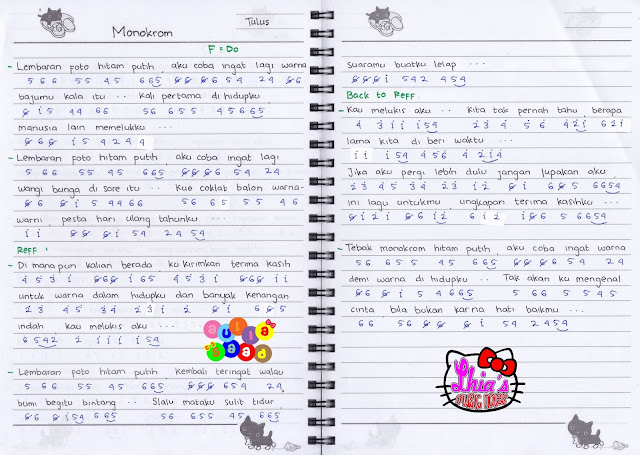 Tulus
Monokrom
F = Do
- Lembaran foto hitam putih aku coba ingat lagi warna
5 6 6 5 5 4 5 6 6 5 6 6 6 6 5 4 2 4 6 6
bajumu kala itu .. Kali pertama di hidupku
6 i 5 4 4 6 6 5 6 6 5 5 4 5 6 6 5
manusia lain memelukku ...
6 6 6 i 5 4 2 4 4
- Lembaran foto hitam putih aku coba ingat lagi
5 6 6 5 5 4 5 6 6 5 6 6 6 6 5 4 2 4
wangi bunga di sore itu .. Kue coklat balon warna-
6 6 6 i 5 4 4 6 6 5 6 6 5 5 5 4 6
warni pesta hari ulang tahunku ...
i i 6 6 6 i 5 4 2 4 5 4
Reff :
- Di mana pun kalian berada ku kirimkan terima kasih
4 5 3 i 6 6 6 i 6 5 4 5 3 i 6 6 6 i i
untuk warna dalam hidupku dan banyak kenangan
2 3 4 5 3 4 2 3 i 2 6 i 6 6 5
indah kau melukis aku ...
6 5 4 2 2 i i i i 5 4
aulia
saad
- Lembaran foto hitam putih kembali teringat walau
5 6 6 5 5 4 5 6 6 5 6 6 6 6 5 4 2 4
bumi begitu bintang .. Slalu mataku sulit tidur
6 6 6 i 5 4 6 6 5 5 6 6 5 5 4 5 6 6 5
suaramu buatku lelap ...
6 6 6 i 5 4 2 4 5 4
Back to Reff
- Kau melukis aku .. Kita tak pernah tahu berapa
4 3 i i i 5 4 2 3 4 5 6 4 2 i 6 2 i
lama kita di beri waktu ...
i i i 5 4 4 5 6 4 2 i 4
Jika aku pergi lebih dulu jangan lupakan aku
2 3 4 5 3 4 2 3 i 2 6 i 6 6 5 6 6 5 4
ini lagu untukmu ungkapan terima kasihku ...
6 i 2 i 6 6 i 2 6 i 2 i 6 6 5 6 6 5 4
- Tebak monokrom hitam putih aku coba ingat warna
5 6 6 5 5 4 5 6 6 5 6 6 6 6 5 4 2 4
demi warna di hidupku .. Tak akan ku mengenal
6 6 6 i 5 4 6 6 5 5 6 6 5 5 4 5
cinta bila bukan karna hati baikmu ...
6 6 5 6 6 6 6 i 5 4 2 4 5 4
Lhia's